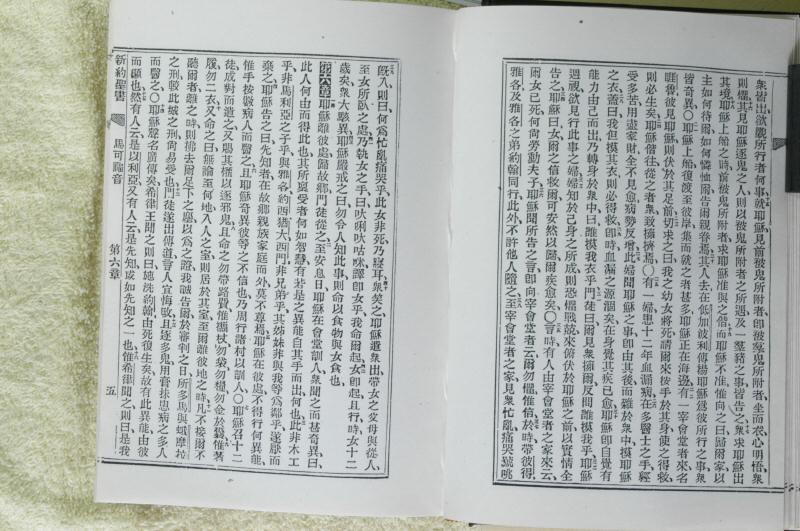 衆皆出欲觀所行者何事就耶穌見前被鬼所附者卽被羣鬼所附者坐而衣心明悟衆
則懼其見耶穌逐鬼之人則以被鬼所附者之所遇及一羣豬之事皆告之衆求耶穌出
其境耶穌上船之時前被鬼所附者求耶穌准與之偕而耶穌不准惟向之曰歸爾家以
主如何待爾如何憐恤爾告爾親眷焉其人去在低加波利傳揚耶穌爲彼所行之事衆
皆奇異〇耶穌上船復渡至彼岸集而就之者甚多耶穌正在海邊有一宰會堂者來名
睚魯彼見耶穌則伏於其足前切求之曰我之幼女將死請爾來按手於其身使之得救
則必生矣耶穌偕往從之者衆致擁擠焉〇有一婦患十二年血漏病在多醫士之手經
受多苦用盡家財全不見愈病勢反增此婦聞耶穌之事卽由其後而雜於衆中摸耶穌
之衣蓋曰我但摸其衣則必得救卽時血漏之源涸矣在身覺其疾已愈耶穌卽自覺有
能力由己而出乃轉身於衆中曰誰摸我衣乎門徒曰爾見衆擁爾反問誰摸我乎耶穌
週視欲見行此事之婦婦知於己身之所成則恐懼戰兢來俯伏於耶穌之前以實情全
告之耶穌曰女爾之信救爾可安然以歸爾疾愈矣〇言時有人由宰會堂者之家來云
爾女已死何尚勞動夫子耶穌聞所告之言卽向宰會堂者曰爾勿懼惟信於時帶彼得
雅各及雅各之弟約翰同行此外不許他人隨之至宰會堂者之家見衆忙亂痛哭號咷
旣入則曰何爲忙亂痛哭乎此女非死乃寢耳衆笑之耶穌遣衆出帶女之父母與從人
至女所臥之處乃執女之手曰呔唎吠咕咪譯卽女乎我命爾起女卽起且行時女十二
歲矣衆大駭異耶穌嚴戒之曰勿令人知此事則命以食物與女食也
第六章耶穌離彼處歸故鄉門徒從之至安息日耶穌在會堂訓人衆聞之而甚奇異曰
此人何由而得此也其所稟受者何如智慧有若是之異能自其手而出何也此非木工
乎非馬利亞之子乎與雅各約西猶大西門非兄弟乎其姊妹非與我等爲鄰乎遂厭而
棄之耶穌告之曰先知者在故鄉親族家庭而外莫不尊焉耶穌在彼處不得行何異能
惟手按數病人而醫之且耶穌奇異彼等之不信也乃周行諸村以訓人〇耶穌召十二
徒成對而遣之又賜其權以逐邪鬼且命之勿帶路費惟攜杖勿袋勿糧勿金於囊惟著
履勿二衣又命之曰無論至何地入人之室則居於其室至爾離彼地之時凡不接爾不
聽爾者離之時則拂去爾足下之塵以爲之證我誠告爾於審判之日所多馬與蛾摩拉
之刑較此城之刑尚易受也門徒遂出傳道言人宜悔改且逐多鬼用膏抹患病之多人
而醫之〇耶穌聲名廣傳矣希律王聞之則曰施洗約翰由死復生矣故有此異能由彼
而顯也然有人云是以利亞又有人云是先知或如先知之一也惟希律聞之則曰是我
新約聖書
馬可福音
第六章
五